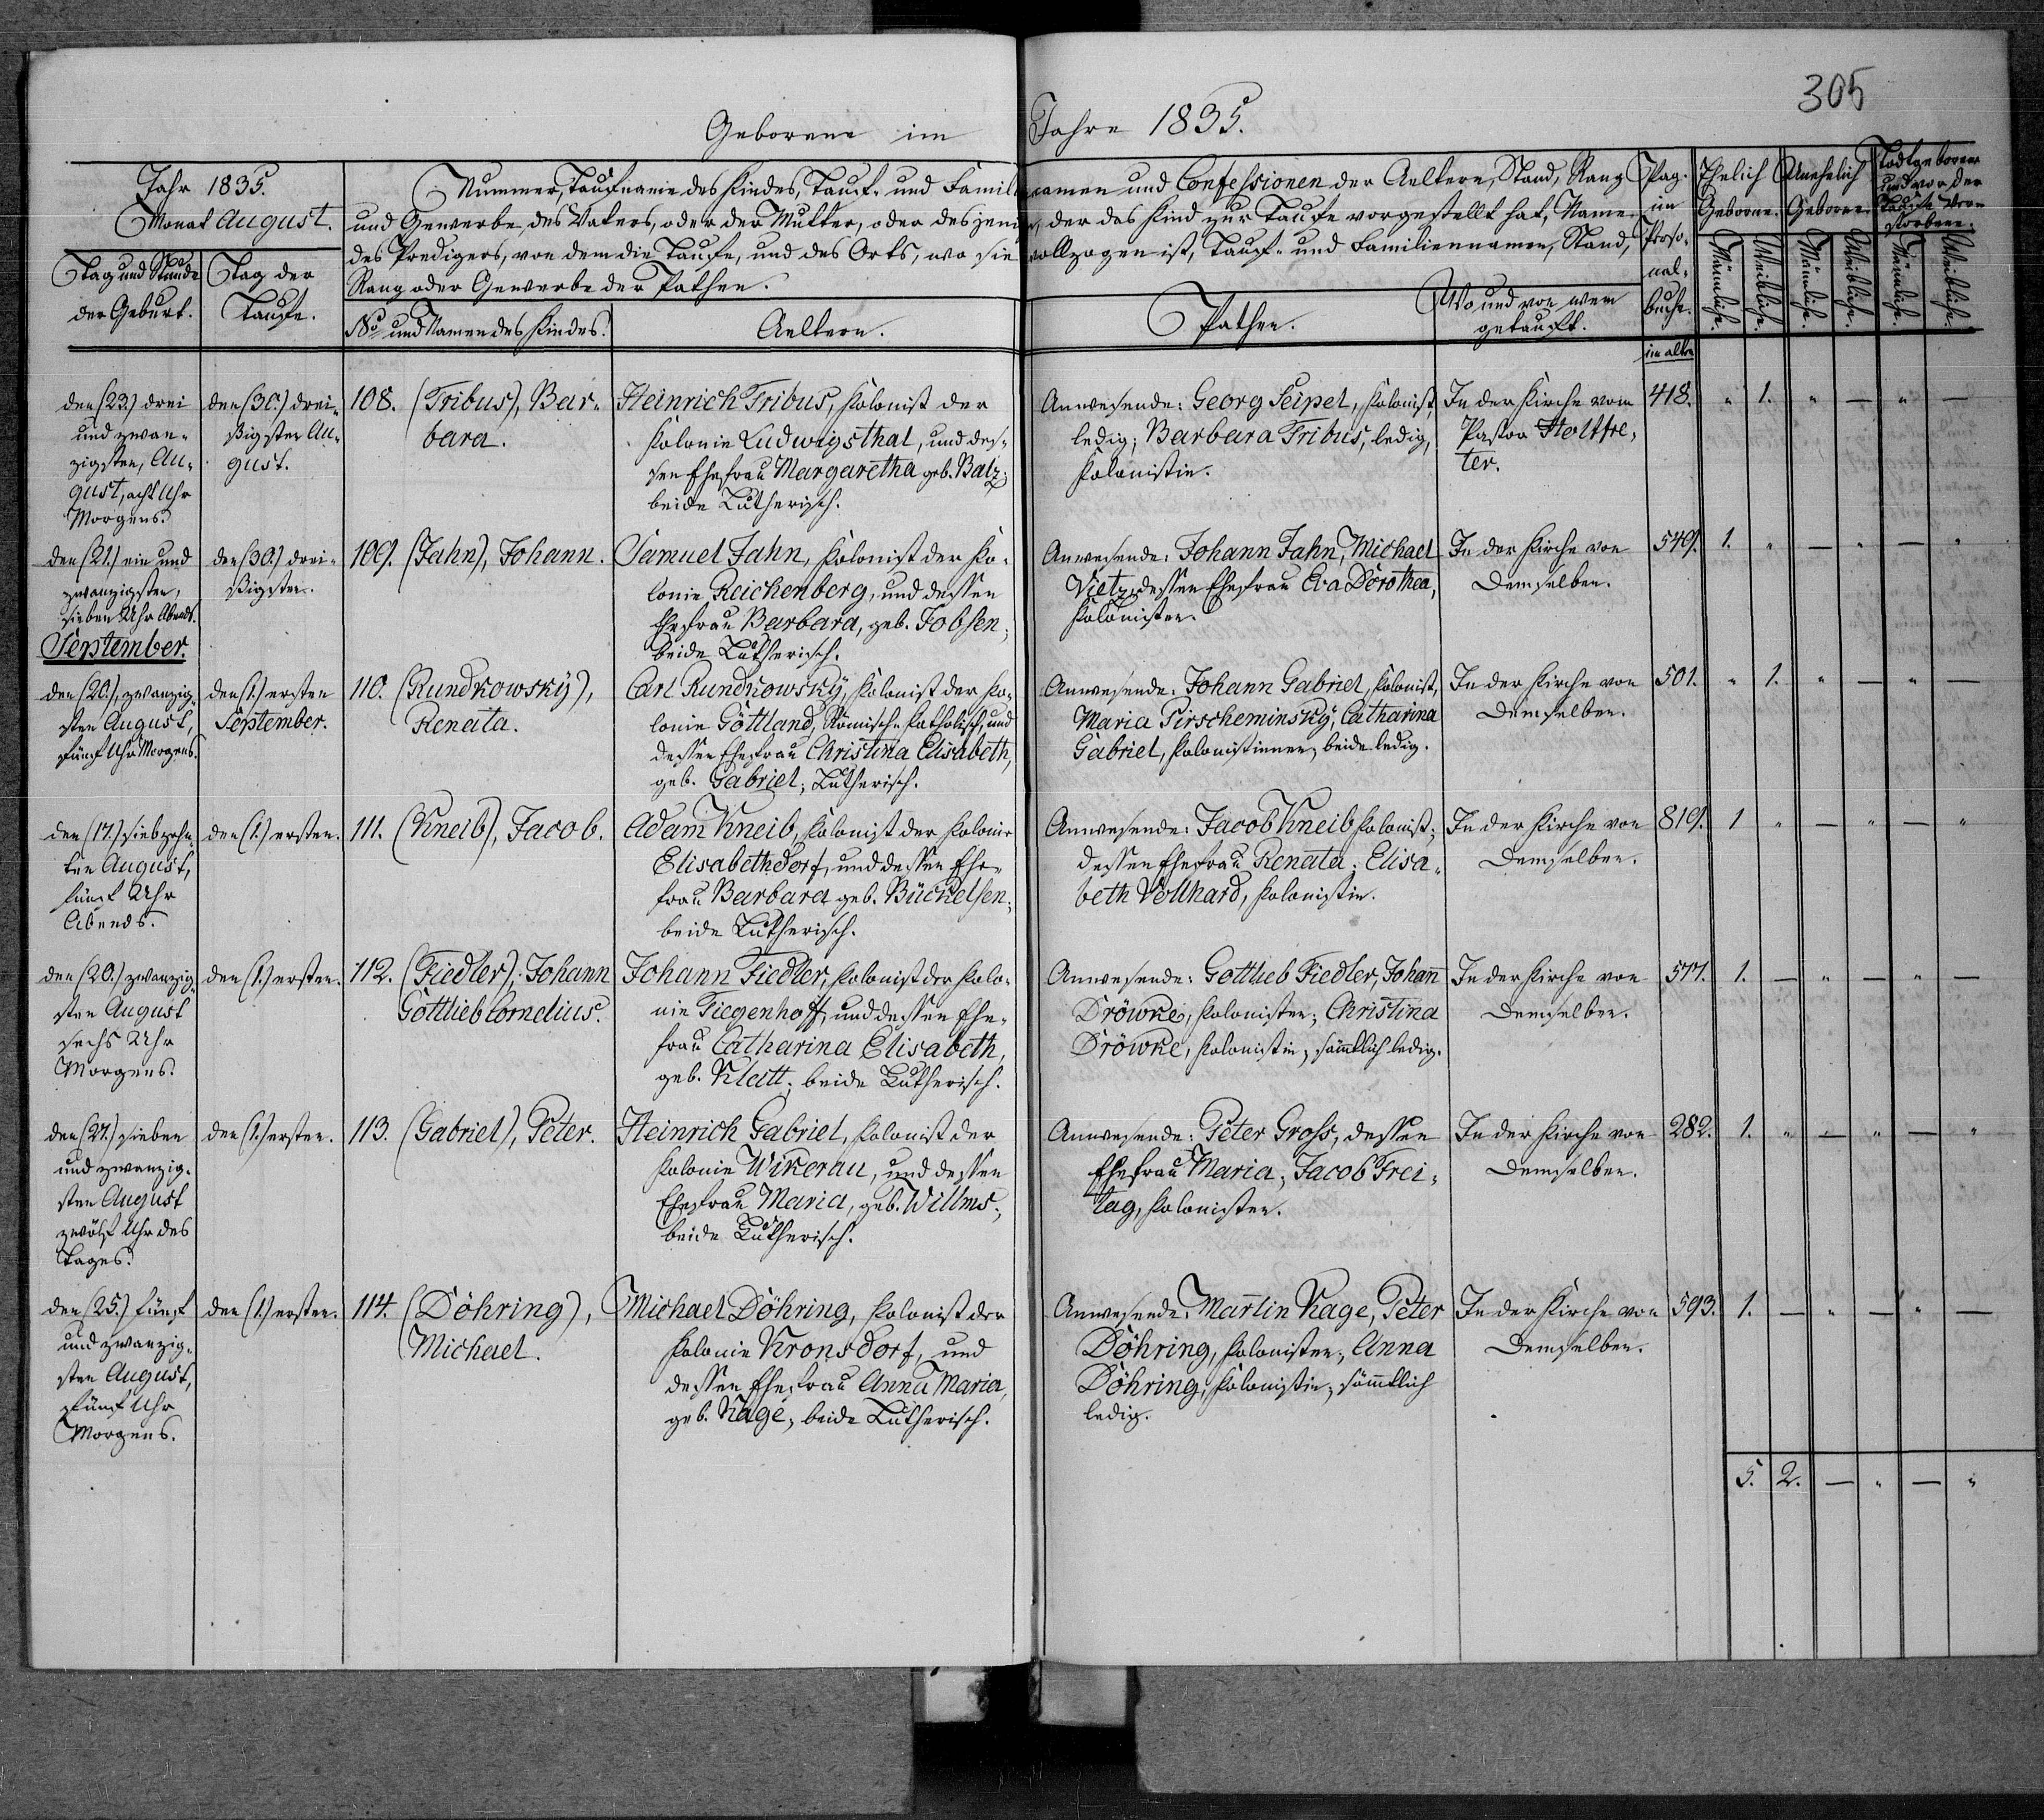 305
Geborene im Jahre 1835.
Jahr 1835.
Monat August.
Tag und Stunde
der Geburt.
Tag der
Taufe.
Nummer, Taufname des Kindes, Tauf- und Familiennamen und Confessionen der Aeltern, Stand, Rang
und Gewerbe des Vaters, oder der Mutter, oder desjenigen, der das Kind zur Taufe vorgestellt hat, Name
des Predigers, von dem die Taufe, und des Orts, wo sie vollzogen ist, Tauf- und Familiennamen, Stand,
Rang oder Gewerbe der Pathen.
No und Namen des Kindes.
Aeltern.
Pathen.
Wo und von wem
getauft.
Pag.
im
Perso-
nal-
buche.
Ehelich
Geborne.
Unehelich
Geborne.
Todtgeborene
und vor der
Taufe Ver-
storbene.
Männliche.
Weibliche.
Männliche.
Weibliche.
Männliche.
Weibliche.
im alten
den (23.) drei
und zwan-
zigsten, Au-
gust, acht Uhr
Morgens.
den (30.) drei-
ßigsten Au-
gust.
108. (Tribus), Bar-
bara.
Heinrich Tribus, Kolonist der
Kolonie Ludwigsthal, und des-
sen Ehefrau Margaretha geb. Balz;
beide Lutherisch.
Anwesende: Georg Seipel, Kolonist,
ledig; Barbara Tribus, ledig,
Kolonistin.
In der Kirche vom
Pastor Holtfre-
ter.
418. " 1. " — " —
den (21.) ein und
zwanzigsten,
sieben Uhr Abends.
den (30.) drei-
ßigsten.
109. (Jahn), Johann.
Samuel Jahn, Kolonist der Ko-
lonie Reichenberg, und dessen
Ehefrau Barbara, geb. Jobsen;
beide Lutherisch.
Anwesende: Johann Jahn, Michael
Vietz, dessen Ehefrau Eva Dorothea,
Kolonisten.
In der Kirche von
Demselben.
549. 1. " — " — "
September.
den (20.), zwanzig-
sten August,
fünf Uhr Morgens.
den (1.) ersten
September.
110. (Rundkowsky),
Renata.
Carl Rundkowsky, Kolonist der Ko-
lonie Göttland, Römisch-Katholisch, und
dessen Ehefrau Christina Elisabeth,
geb. Gabriel; Lutherisch.
Anwesende: Johann Gabriel, Kolonist,
Maria Pirscheminsky, Catharina
Gabriel, Kolonistinnen, beide ledig.
In der Kirche von
Demselben.
501. " 1. " — " —
den (17.) siebzehn-
ten August,
fünf Uhr
Abends.
den (1.) ersten.
111. (Kneib), Jacob.
Adam Kneib, Kolonist der Kolonie
Elisabethdorf, und dessen Ehe-
frau Barbara geb. Büchelsen;
beide Lutherisch.
Anwesende: Jacob Kneib Kolonist;
dessen Ehefrau Renata; Elisa-
beth Vollhard, Kolonistin.
In der Kirche von
Demselben.
819. 1 " — " — "
den (20.) zwanzig-
sten August
sechs Uhr
Morgens.
den (1.) ersten.
112. (Fiedler), Johann
Gottlieb Cornelius.
Johann Fiedler, Kolonist der Kolo-
nie Tiegenhoff, und dessen Ehe-
frau Catharina Elisabeth,
geb. Klatt; beide Lutherisch.
Anwesende: Gottlieb Fiedler, Johann
Dröwke, Kolonisten; Christina
Dröwke, Kolonistin, sämtlich ledig.
In der Kirche von
Demselben.
577. 1. — " — " —
den (27.) sieben
und zwanzig-
sten August
zwölf Uhr des
Tages.
den (1.) ersten.
113. (Gabriel), Peter.
Heinrich Gabriel, Kolonist der
Kolonie Wikerau, und dessen
Ehefrau Maria, geb. Willms;
beide Lutherisch.
Anwesende: Peter Gross, dessen
Ehefrau Maria; Jacob Frei-
tag, Kolonisten.
In der Kirche von
Demselben.
282. 1. " — " — "
den (25.) fünf
und zwanzig-
sten August,
fünf Uhr
Morgens.
den (1.) ersten.
114. (Döhring),
Michael.
Michael Döhring, Kolonist der
Kolonie Kronsdorf, und
dessen Ehefrau Anna Maria,
geb. Kage; beide Lutherisch.
Anwesende: Martin Kage, Peter
Döhring, Kolonisten; Anna
Döhring, Kolonistin, sämtlich
ledig.
In der Kirche von
Demselben.
593. 1. — " — " —
5. 2. — " — "